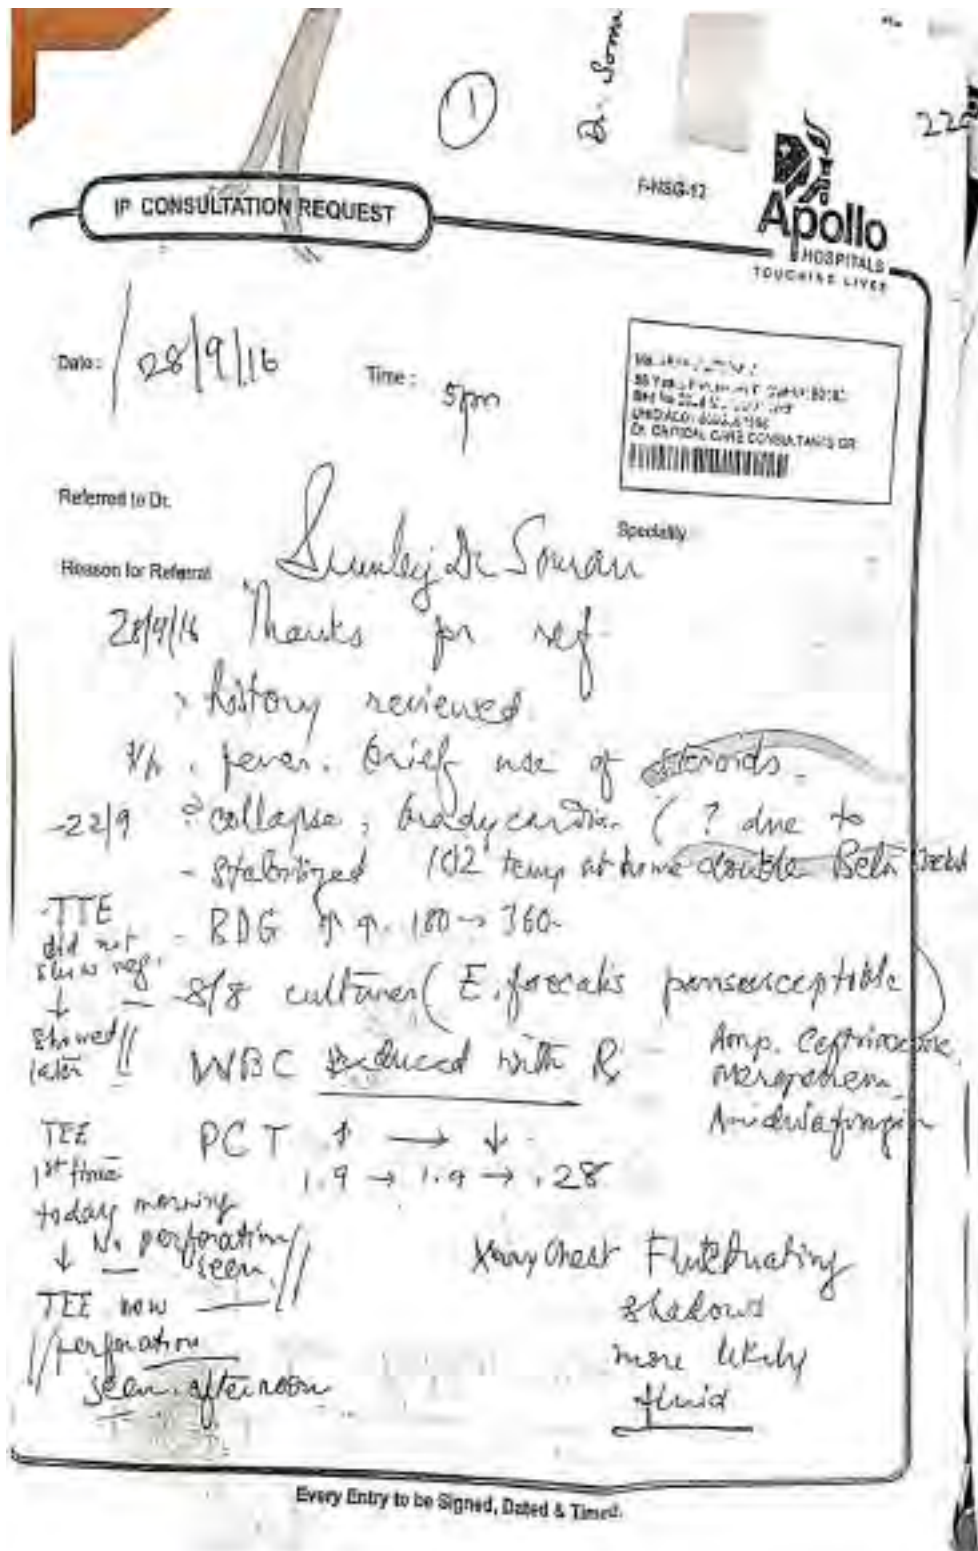 1
Dr. Soma
22
F-NSG-12
IP CONSULTATION REQUEST
Apollo
HOSPITALS
TOUCHING LIVES
Date: 28/9/16
Time: 5pm
Dr. CRITICAL CARE CONSULTANTS GR
Referred to Dr.
Speciality
Reason for Referral
Dr Soman
28/9/16 Thanks for ref.
history reviewed.
H/o. fever. brief use of steroids.
-22/9 ? collapse, bradycardia (? due to
- stabilized 102 temp at home double Beta
-TTE
did not
show veg.
↓
showed
later
- BDG ↑ ↑. 180 → 360.
- 8/8 cultures (E. faecalis pansusceptible)
WBC reduced with Rx -
Amp. Ceftriaxone,
Meropenem
Anidulafungin
PCT ↑ → ↓
1.9 → 1.9 → .28
TEE
1st time
today morning
↓ No perforation
seen.
TEE now
perforation
seen. afternoon
Xray Chest Fluctuating
shadows
more likely
fluid
Every Entry to be Signed, Dated & Timed.